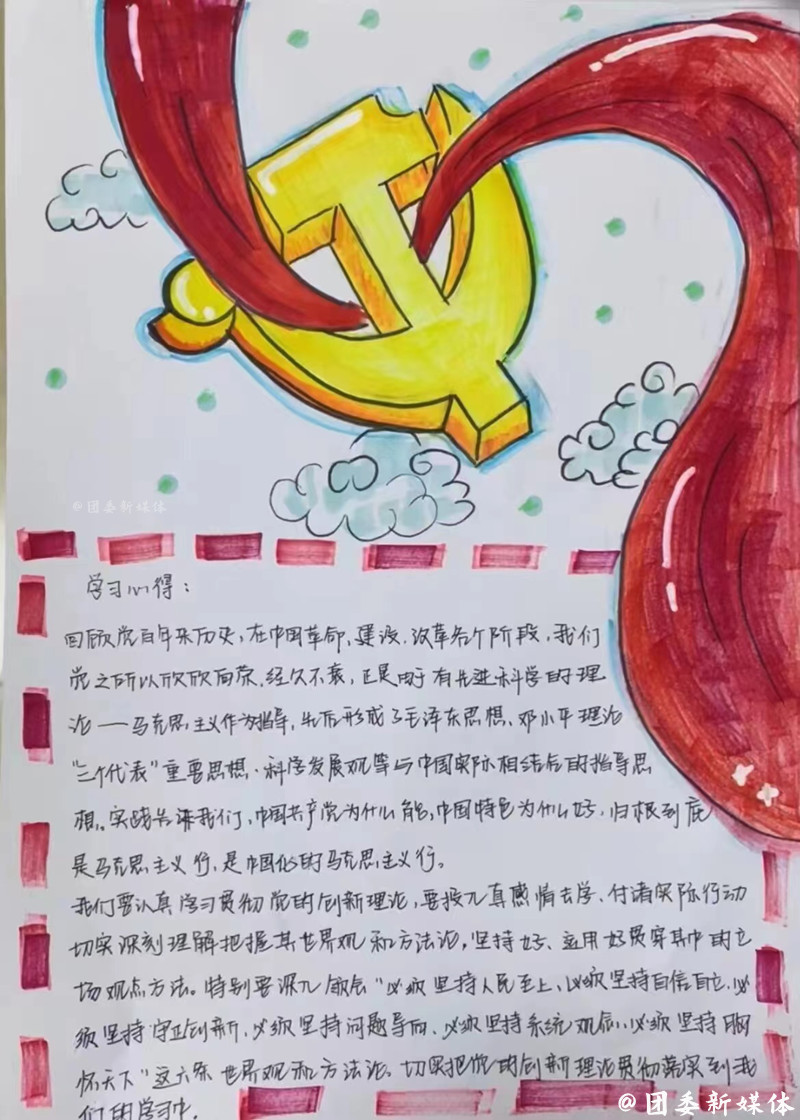 @团委新媒体
学习心得：
回顾党百年来历史，在中国革命，建设、改革各个阶段，我们
党之所以欣欣向荣、经久不衰，正是由于有先进科学的理
论——马克思主义作为指导，先后形成了毛泽东思想、邓小平理论
“三个代表”重要思想、科学发展观等与中国实际相结合的指导思
想。实践告诉我们，中国共产党为什么能，中国特色为什么好，归根到底
是马克思主义行，是中国化的马克思主义行。
我们要认真学习贯彻党的创新理论，要投入真感情去学、付诸实际行动
切实深刻理解把握其世界观和方法论，坚持好、运用好贯穿其中的立
场观点方法。特别要深入领会“必须坚持人民至上、必须坚持自信自立、必
须坚持守正创新、必须坚持问题导向、必须坚持系统观念、必须坚持胸
怀天下”这六条世界观和方法论。切实把党的创新理论贯彻落实到我
们的学习中.
@团委新媒体